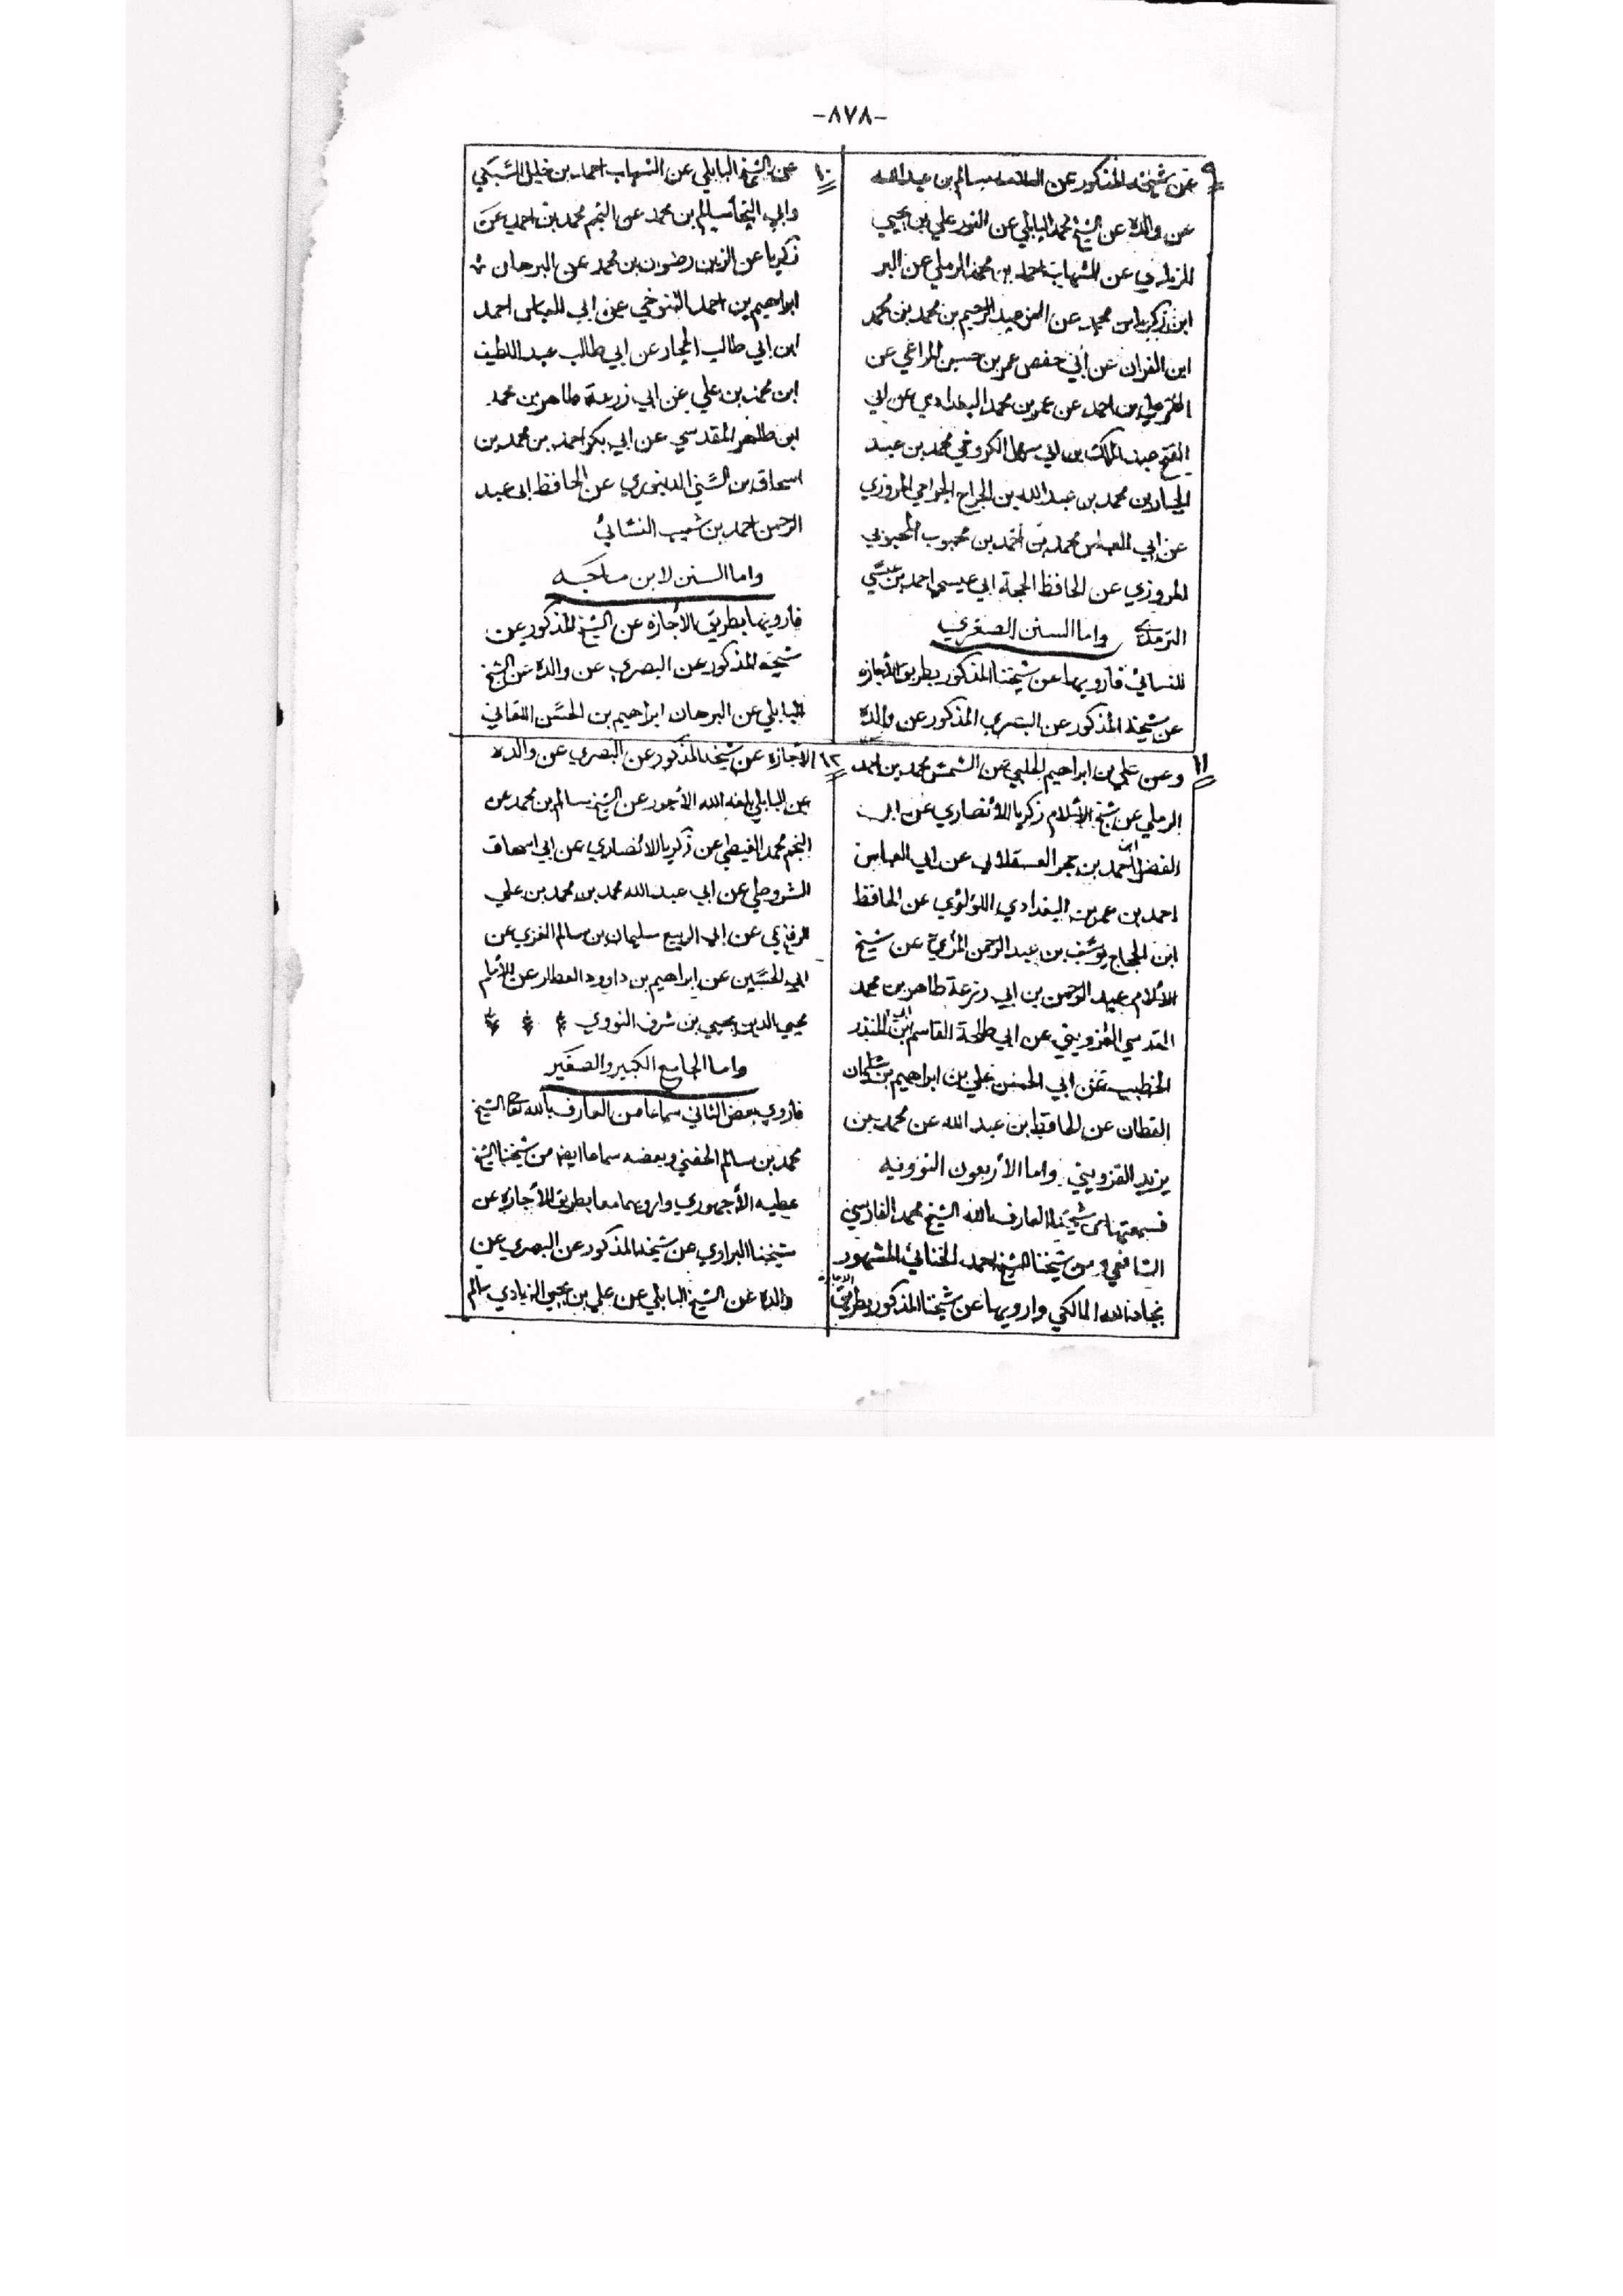 -٨٧٨-
٩
عن شيخه المذكور عن سالم بن عبدالله
عن والده عن الشيخ محمد البابلي عن النور علي بن يحيي
الزيادي عن الشهاب احمد بن محمد الرملي عن البر
ابن زكريا بن محمد عن العز عبد الرحيم بن محمد بن محمد
ابن الفران عن أبي حفص عمر بن حسين المراغي عن
بن احمد عن عمر بن محمد البغدادي عن ابي
الفتح عبد الملك بن ابي سهل الكروخي محمد بن عبد
الجبار بن محمد بن عبد الله بن الجراح الجراحي المروزي
عن ابي العباس محمد بن أحمد بن محبوب المحبوبي
المروزي عن الحافظ الحجة ابي عيسى احمد بن عيسي
الترمذي واما السنن الصغري
للنسائي فارويها عن شيخنا المذكور بطريق الأجازه
عن شيخه المذكور عن البصري المذكور عن والده
١٠
عن الشيخ البابلي عن الشهاب احمد بن خليل السبكي
وابي النجا سالم بن محمد عن النجم محمد بن احمد عن
زكريا عن الزين رضوان بن محمد عن البرهان
ابراهيم بن احمد التنوخي عن ابي العباس احمد
ابن ابي طالب الحجار عن ابي طالب عبد اللطيف
ابن محمد بن علي عن ابي زرعة طاهر بن محمد
ابن طاهر المقدسي عن ابي بكر احمد بن محمد بن
اسحاق بن السني الدينوري عن الحافظ ابى عبد
الرحمن احمد بن شعيب النسائي
واما السنن لابن ماجه
فارويها بطريق الأجازه عن الشيخ المذكور عن
شيخه المذكور عن البصري عن والده عن الشيخ
البابلي عن البرهان ابراهيم بن الحسن اللقاني
١١
وعن علي بن ابراهيم الحلبي عن الشمس محمد بن احمد
الرملي عن شيخ الأسلام زكريا الأنصاري عن ابي
الفضل احمد بن حجر العسقلاني عن ابي العباس
احمد بن عمر بن البغدادي اللؤلؤي عن الحافظ
ابن الحجاج يوسف بن عبد الرحمن المزي عن شيخ
الأسلام عبد الرحمن بن ابي زرعة طاهر بن محمد
المقدسي القزويني عن ابي طلحة القاسم ابن المنذر
الخطيب عن ابي الحسن علي بن ابراهيم بن سلمان
القطان عن الحافظ ابن عبد الله عن محمد بن
يزيد القزويني واما الأربعون النوويه
فسمعتها من شيخنا العارف بالله الشيخ محمد الفارسي
الشافعي و من شيخنا الشيخ احمد الخناني المشهور
المالكي وارويها عن شيخنا المذكور بطريق
١٢
الأجازه عن شيخه المذكور عن البصري عن والده
عن البابلي بلغه الله الأجور عن الشيخ سالم بن محمد عن
النجم محمد الغيطي عن زكريا الانصاري عن ابي اسحاق
الشروطي عن ابي عبد الله محمد بن محمد بن علي
عن ابي الربيع سليمان بن سالم الغزي عن
ابي الحسين عن ابراهيم بن داوود العطار عن الأمام
محيي الدين يحيي بن شرف النووي
واما الجامع الكبير والصغير
فاروي بعض الثاني سماعا من العارف بالله تعالى الشيخ
محمد بن سالم الحفني وبعضه سماعا ايضا من شيخنا الشيخ
عطيه الأجهوري وارويهما معا بطريق الأجازه عن
شيخنا البراوي عن شيخه المذكور عن البصري عن
والده عن الشيخ البابلي عن علي بن يحيي الزيادي سالم